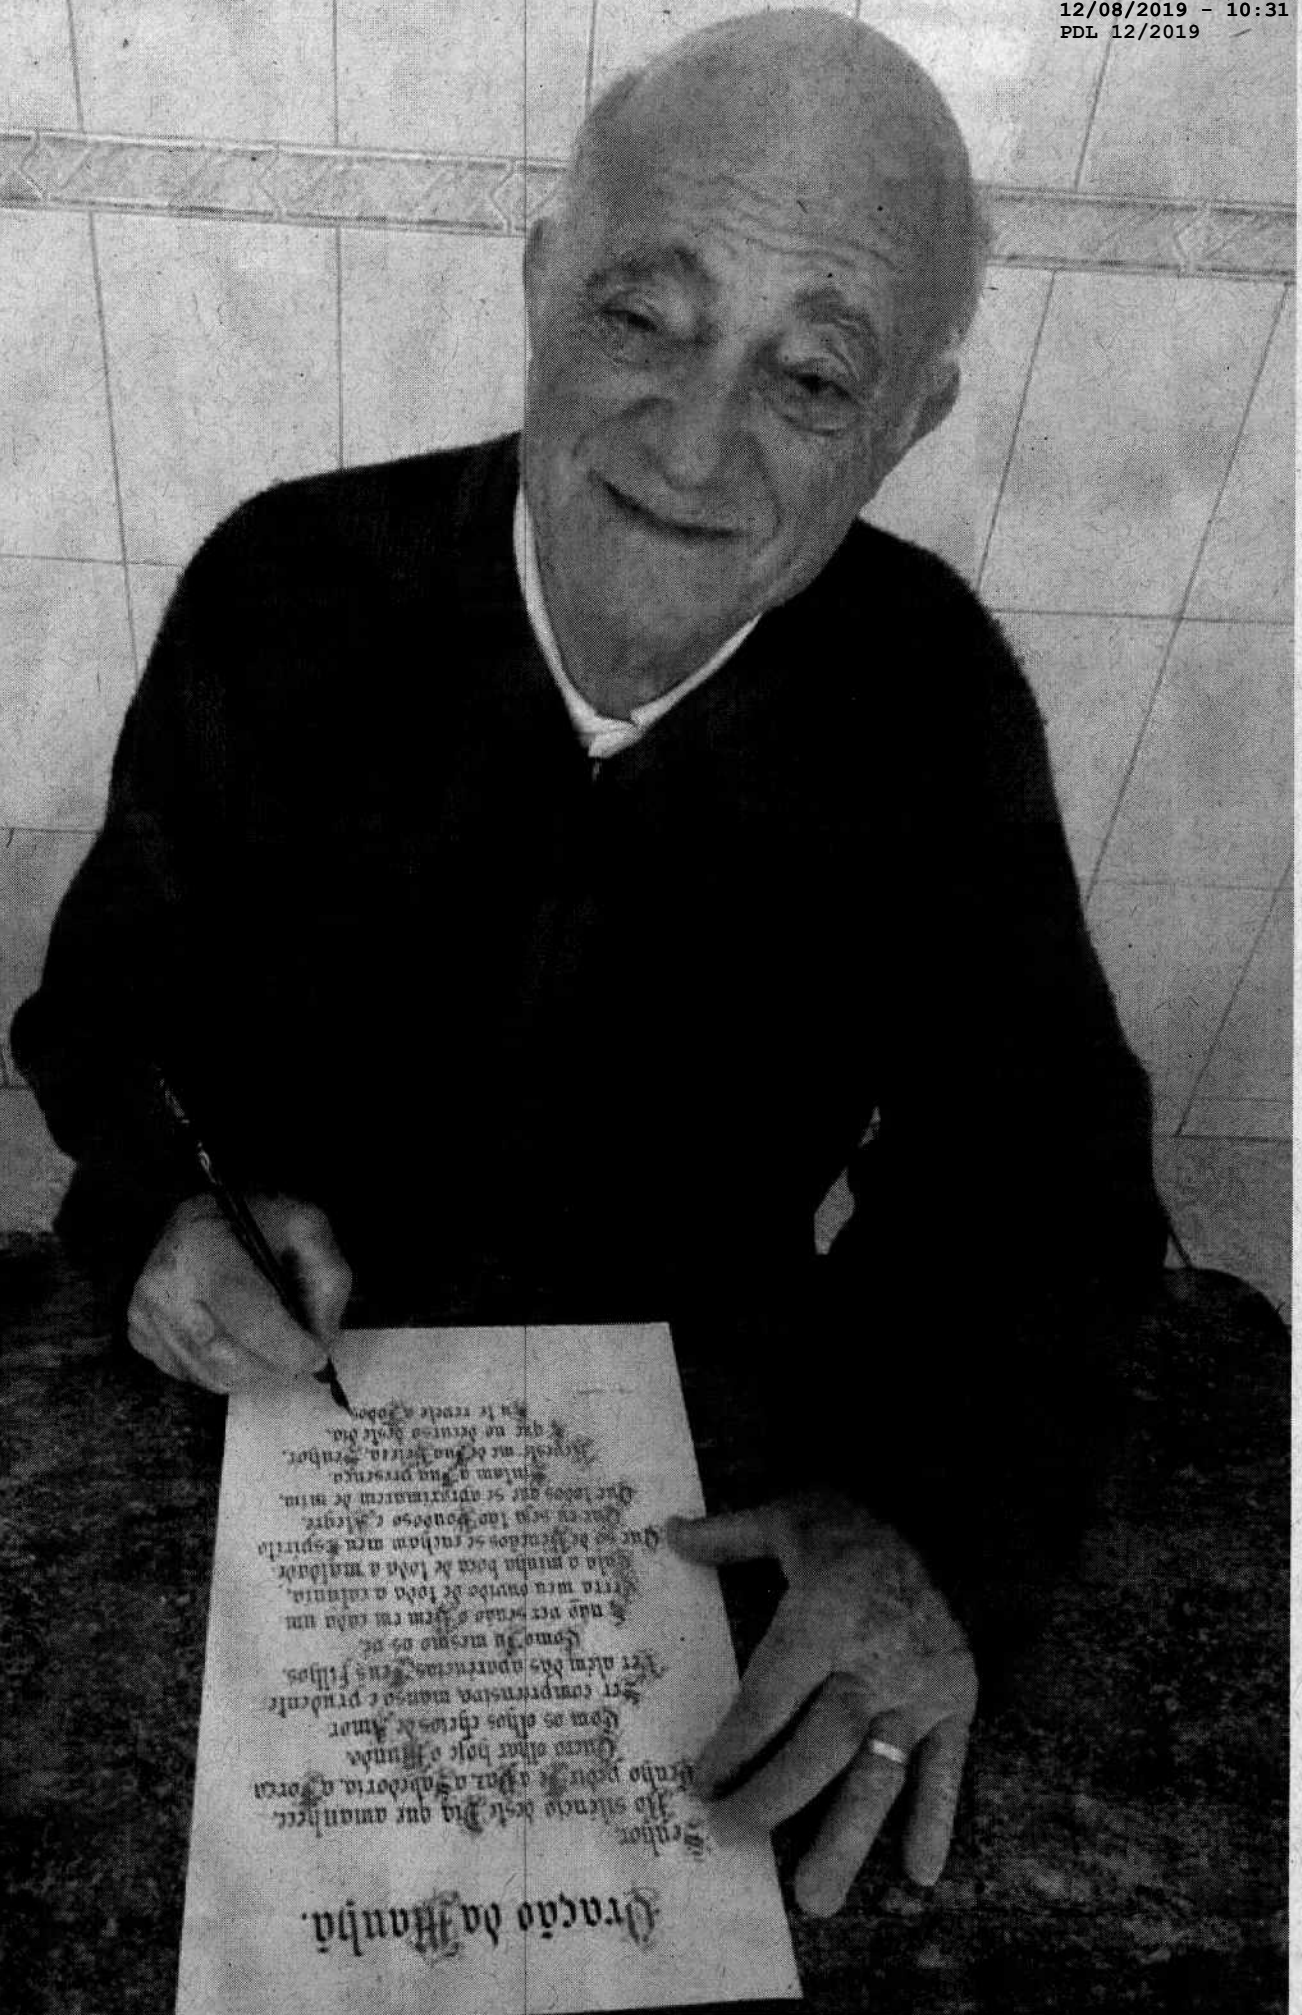 12/08/2019 - 10:31
PDL 12/2019
Oração da Manhã.
Senhor,
No silêncio deste Dia que amanhece,
Venho pedir-te a Paz, a Sabedoria, a Força
Quero olhar hoje o Mundo
Com os olhos cheios de Amor
Ser compreensivo, manso e prudente
Ver além das aparências, Teus filhos,
Como Tu mesmo os vê,
E não ver senão o Bem em cada um
Cerra meu ouvido de toda a calunia,
Cala a minha boca de toda a maldade,
Que só de Bençãos se encham meu Espirito
Que eu seja tão Bondoso e Alegre,
Que todos que se aproximarem de mim,
Sintam a Tua presença
Reveste-me de Tua Beleza, Senhor,
E que no decurso deste dia,
Eu te revele a Todos